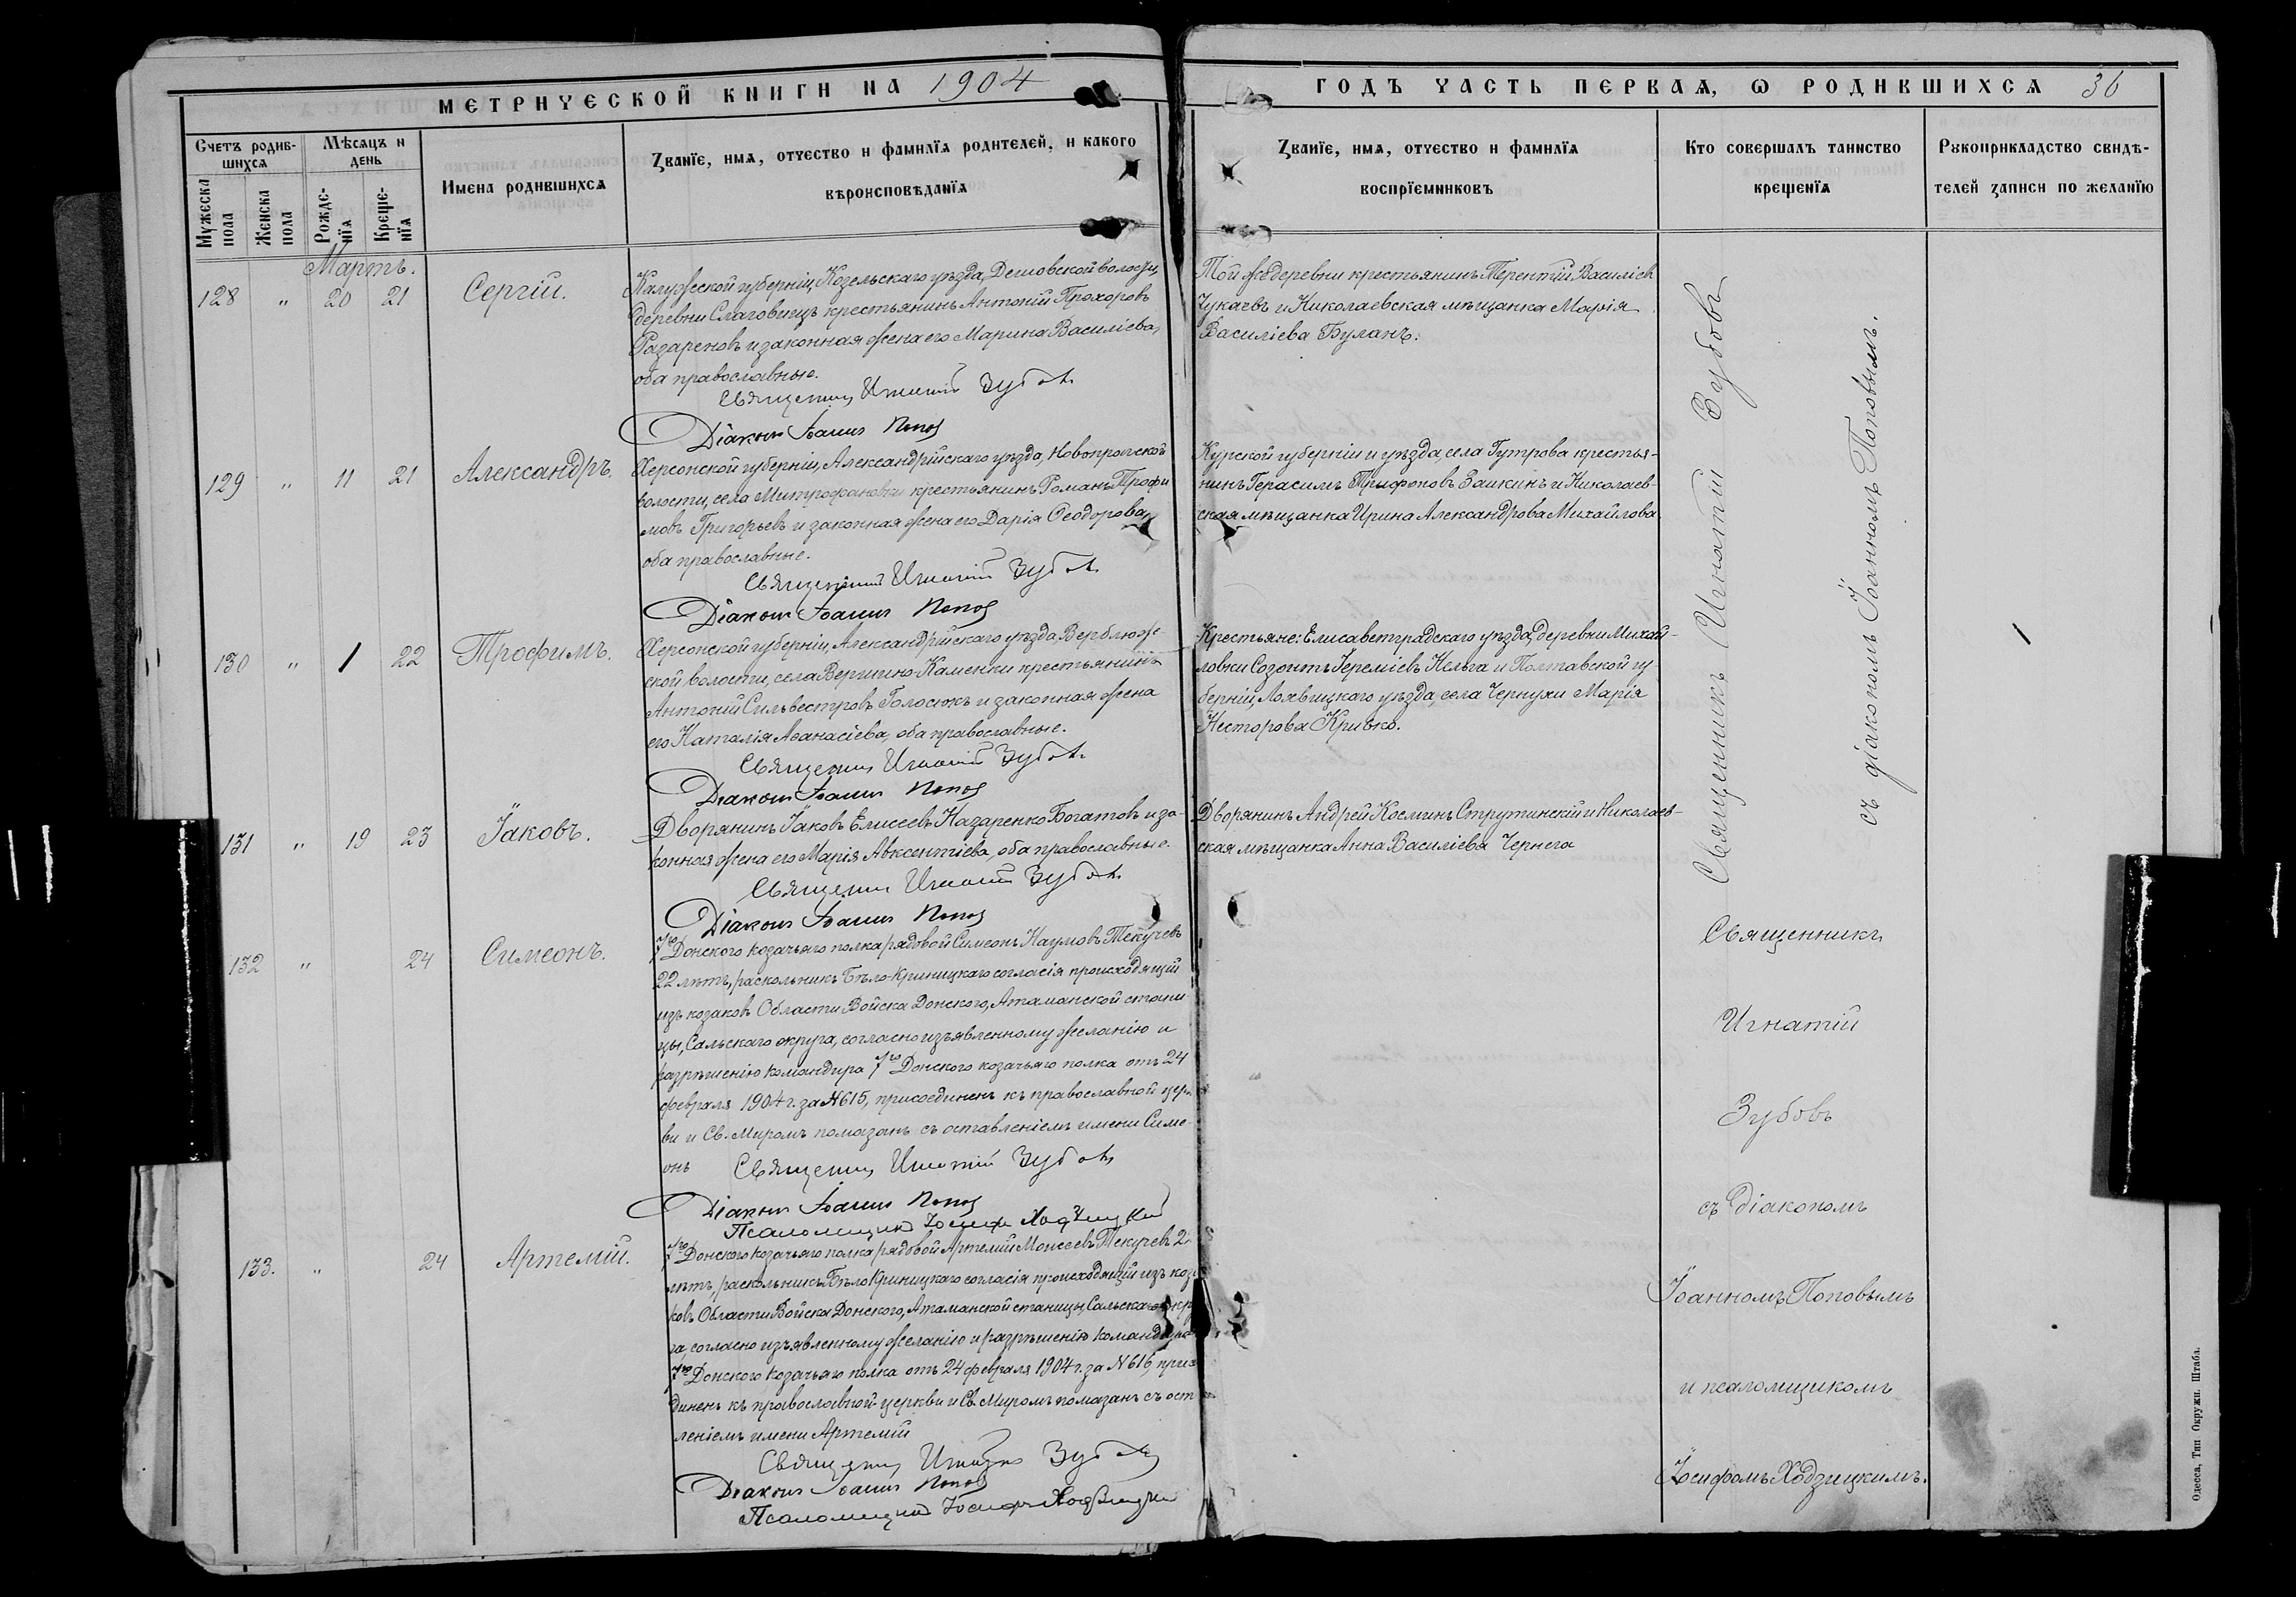 МЕТРИЧЕСКОЙ КНИГИ НА 1904
ГОДЪ ЧАСТЬ ПЕРВАЯ, Ѡ РОДИВШИХСЯ 36
Счетъ родив-
шихся
Мѣсяцъ и
день
Мужеска
пола
Женска
пола
Рожде-
нїя
Креще-
нїя
Имена родившихся
Званїе, имя, отчество и фамилїя родителей, и какого
вѣроисповѣданїя
Званїе, имя, отчество и фамилїя
воспрїемниковъ
Кто совершалъ таинство
крещенїя
Рукоприкладство свидѣ-
телей записи по желанїю
Мартъ.
128 „ 20 21 Сергій.
Калужской губерніи, Козельскаго уѣзда, Дешовской волости,
деревни Слаговищъ крестьянинъ Антоній Прохоровъ
Разареновъ и законная жена его Марина Василіева,
оба православные.
Священникъ Игнатій Зубовъ
Діаконъ Іоаннъ Поповъ
Той же деревни крестьянинъ Терентій Василіевъ
Чукаевъ и Николаевская мѣщанка Марія
Василіева Буланъ.
129 „ 11 21 Александръ.
Херсонской губерніи, Александрійскаго уѣзда, Новопражской
волости, села Митрофановки крестьянинъ Романъ Трофи
мовъ Григорьевъ и законная жена его Дарія Ѳеодорова,
оба православные.
Священникъ Игнатій Зубовъ
Діаконъ Іоаннъ Поповъ
Курской губерніи и уѣзда, села Гутрова крестья-
нинъ Герасимъ Трифоновъ Заикинъ и Николаев-
ская мѣщанка Ирина Александрова Михайлова.
130 „ 1 22 Трофимъ.
Херсонской губерніи, Александрійскаго уѣзда, Верблюж-
ской волости, села Вершино-Каменки крестьянинъ
Антоній Сильвестровъ Голосюкъ и законная жена
его Наталія Аѳанасіева, оба православные.
Священникъ Игнатій Зубовъ
Діаконъ Іоаннъ Поповъ
Крестьяне: Елисаветградскаго уѣзда, деревни Михай-
ловки Созонтъ Іереміевъ Кельга и Полтавской гу-
берніи, Лохвицкаго уѣзда, села Чернухи Марія
Несторова Кривко.
131 „ 19 23 Іаковъ.
Дворянинъ Іаковъ Елисеевъ Назаренко Богатовъ и за-
конная жена его Марія Авксентіева, оба православные.
Священникъ Игнатій Зубовъ
Діаконъ Іоаннъ Поповъ
Дворянинъ Андрей Косминъ Струтинскій и Николаев-
ская мѣщанка Анна Василіева Чернега
Священникъ Игнатій Зубовъ
съ діакономъ Іоанномъ Поповымъ.
132 „ 24 Симеонъ.
7го Донского козачьяго полка рядовой Симеонъ Наумовъ Текучевъ
22 лѣтъ, раскольникъ Бѣло-Криницкаго согласія происходящій
изъ козаковъ Области Войска Донского, Атаманской стани
цы, Сальскаго округа, согласно изъявленному желанію и
разрѣшенію командира 7го Донского козачьяго полка отъ 24
февраля 1904 г. за № 615, присоединенъ къ православной церк
ви и Св. Миромъ помазанъ съ оставленіемъ имени Симе-
онъ Священникъ Игнатій Зубовъ
Діаконъ Іоаннъ Поповъ
Псаломщикъ Іосифъ Ходзицкій
133. „ 24 Артемій.
7го Донского козачьяго полка рядовой Артемій Моисеевъ Текучевъ 2
лѣтъ, раскольникъ Бѣло Криницкаго согласія происходящій изъ коза
ковъ Области Войска Донского, Атаманской станицы, Сальскаго окру
га, согласно изъявленному желанію и разрѣшенію командира
7го Донского козачьяго полка отъ 24 февраля 1904 г. за № 616, присо
диненъ къ православной церкви и Св. Миромъ помазанъ съ ост
леніемъ имени Артемій
Священникъ Игнатій Зубовъ
Діаконъ Іоаннъ Поповъ
Псаломщикъ Іосифъ Ходзицкій
Священникъ
Игнатій
Зубовъ
съ діакономъ
Іоанномъ Поповымъ
и псаломщикомъ
Іосифомъ Ходзицкимъ.
Одесса, Тип Окружн. Штаба.